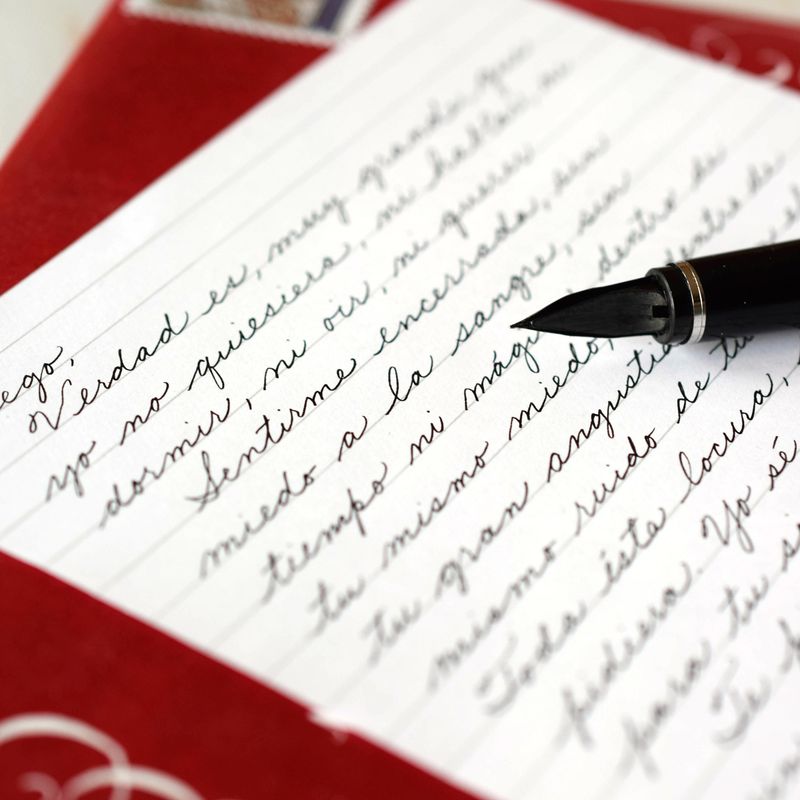 ego,
Verdad es, muy grande que
yo no quiesiera, ni hablar, ni
dormir, ni oir, ni querer
Sentirme encerrada, sin
miedo a la sangre, sin
tiempo ni mági dentro de
tu mismo miedo, dentro de
tu gran angustia
mismo ruido de tu
Toda ésta locura,
pidiera. Yo sé
para tu
Te